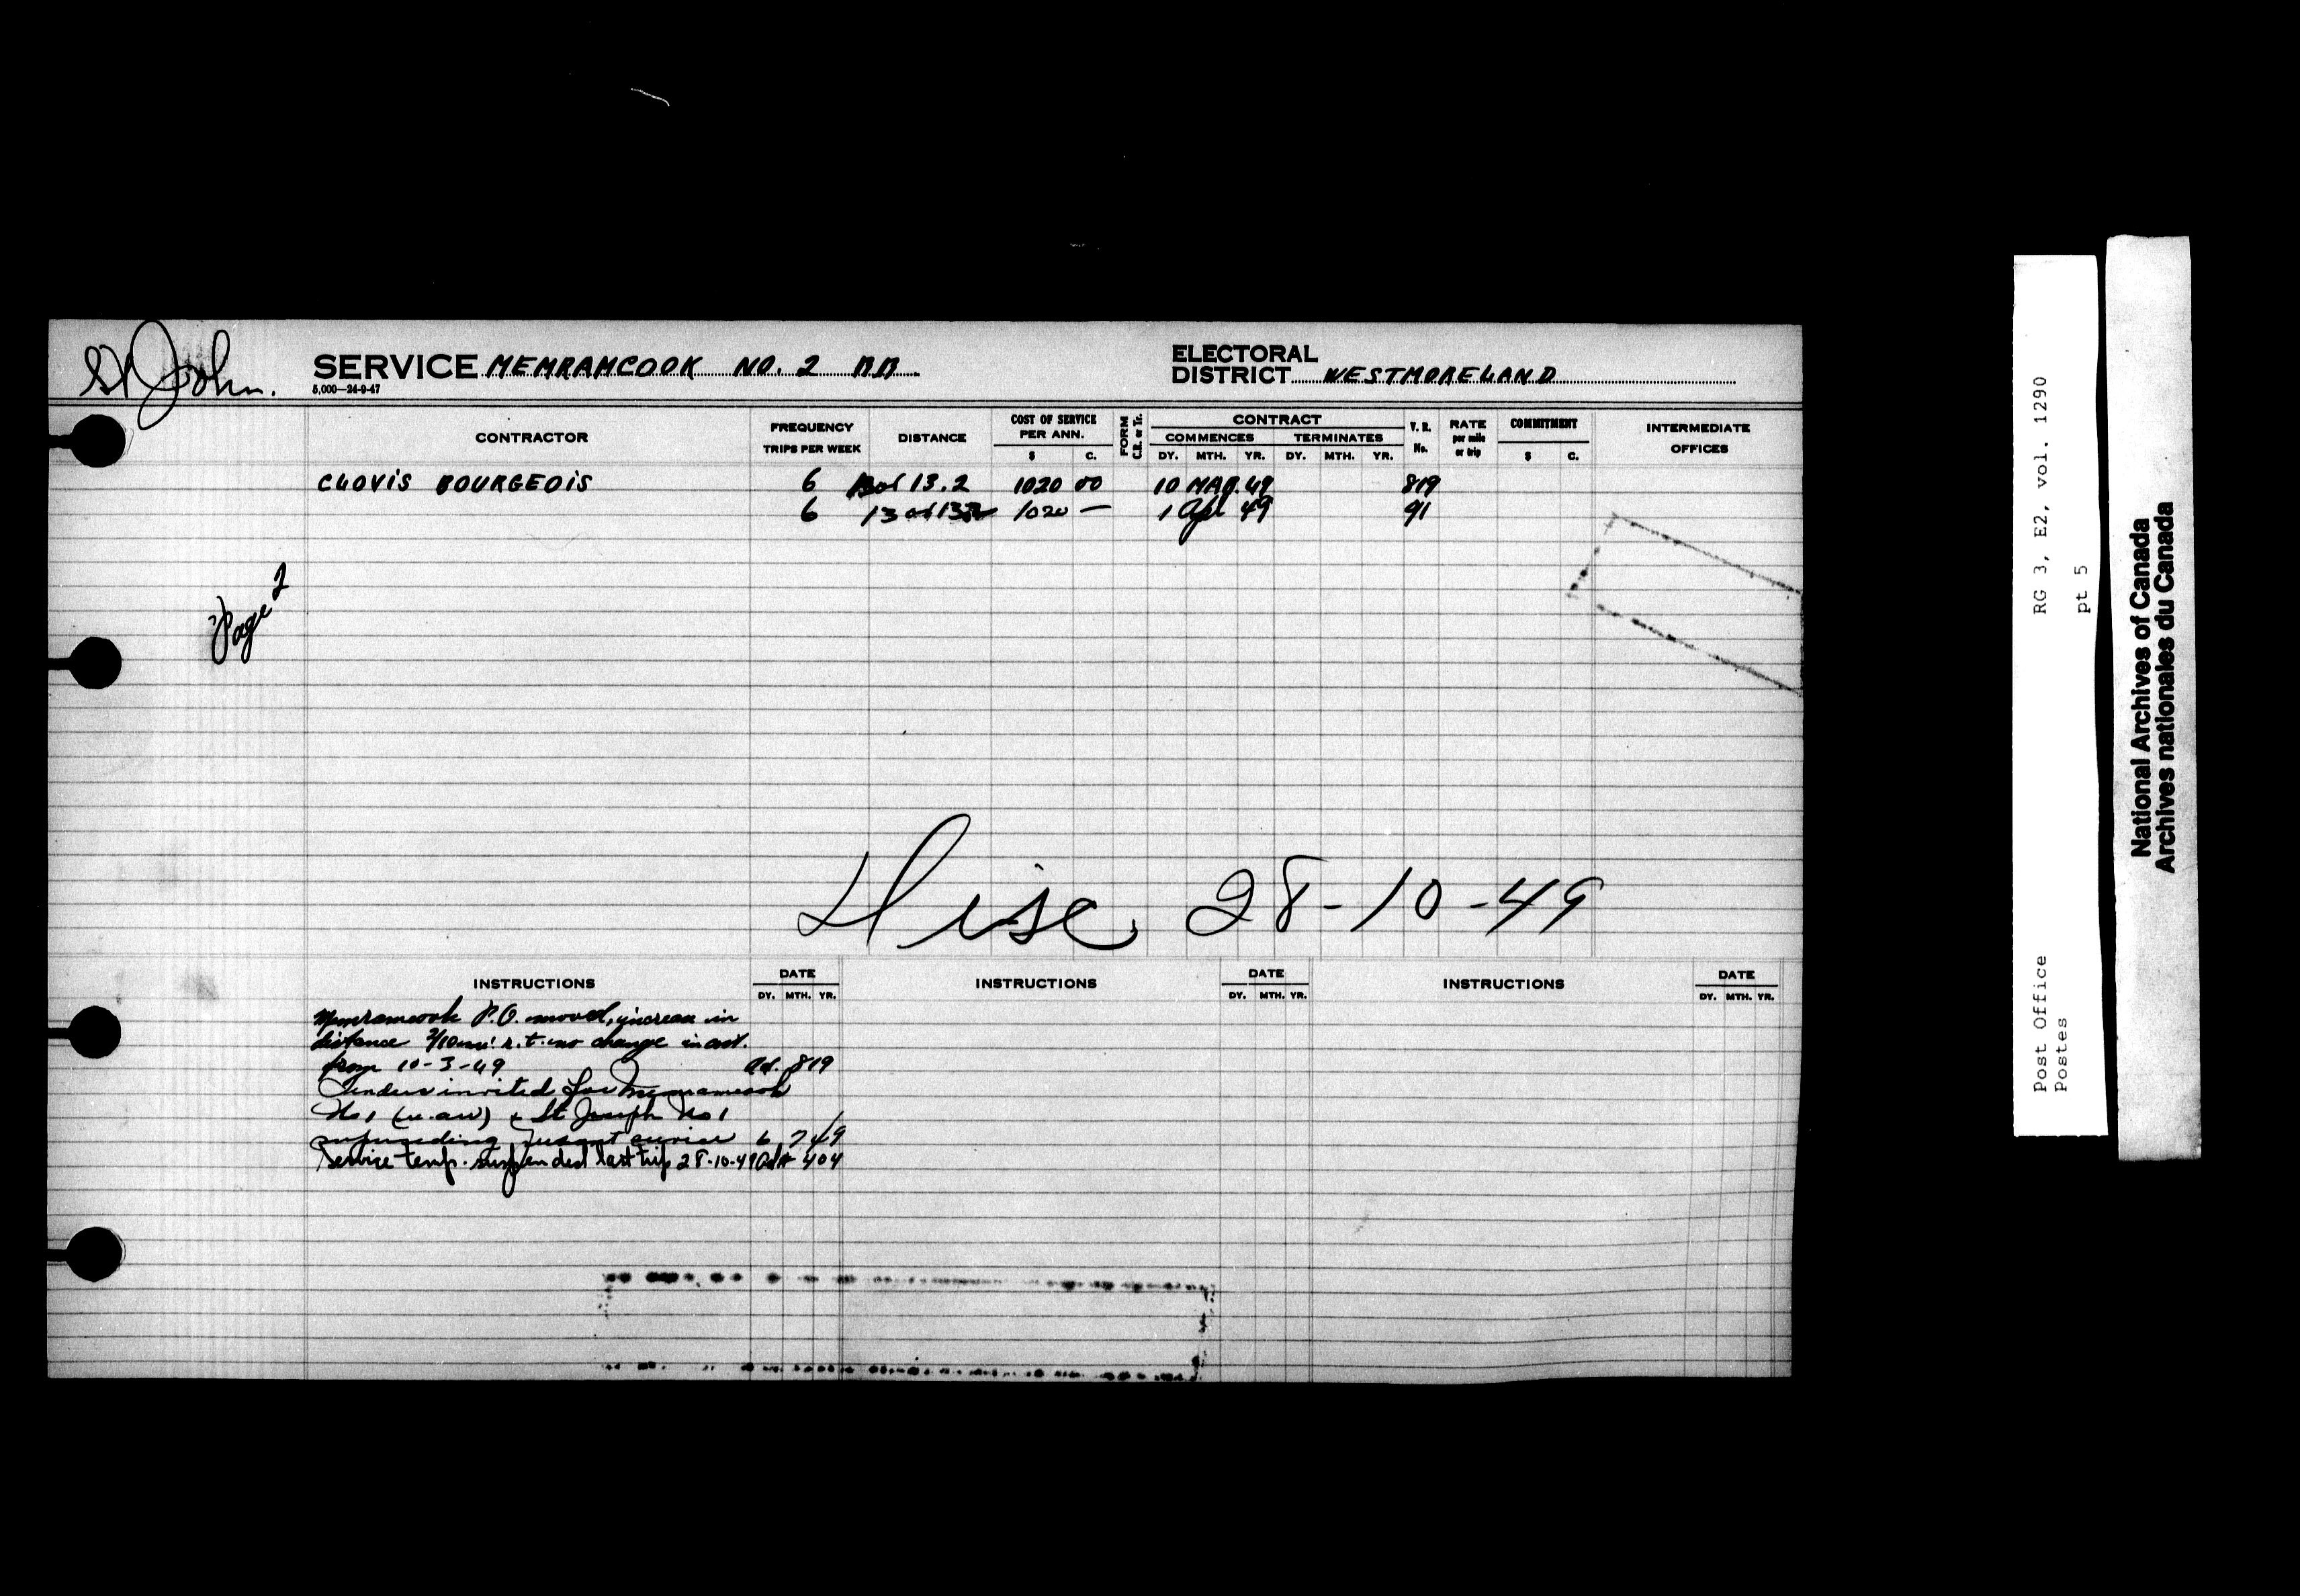 St John.
SERVICE MEMRAMCOOK NO. 2 RR
5,000—24-9-47
ELECTORAL DISTRICT WESTMORELAND
CONTRACTOR
FREQUENCY TRIPS PER WEEK
DISTANCE
COST OF SERVICE PER ANN. $ C.
FORM C.R. or Tr.
CONTRACT
COMMENCES DY. MTH. YR.
TERMINATES DY. MTH. YR.
V. R. No.
RATE per mile or trip
COMMITMENT $ C.
INTERMEDIATE OFFICES
CLOVIS BOURGEOIS 6 13.2 1020 00 10 MAR. 49 819
6 13 1020 — 1 Apr 49 91
Page 2
Disc 28-10-49
INSTRUCTIONS DATE DY. MTH. YR.
INSTRUCTIONS DATE DY. MTH. YR.
INSTRUCTIONS DATE DY. MTH. YR.
Memramcook P.O. moved, increase in
distance 2/10 mi. r.t. no change in cost.
from 10-3-49 Ad. 819
Tenders invited for Memramcook
No 1 & St Joseph No 1
superseding present service 6 7 49
Service temp. suspended last trip 28-10-49 404
RG 3, E2, vol. 1290
pt 5
Post Office
Postes
National Archives of Canada
Archives nationales du Canada